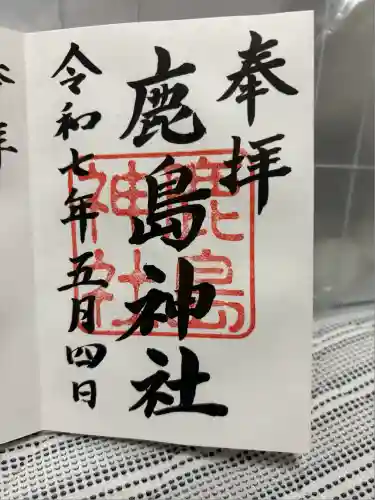 奉拝
鹿島神社
令和七年五月四日
鹿島
神社